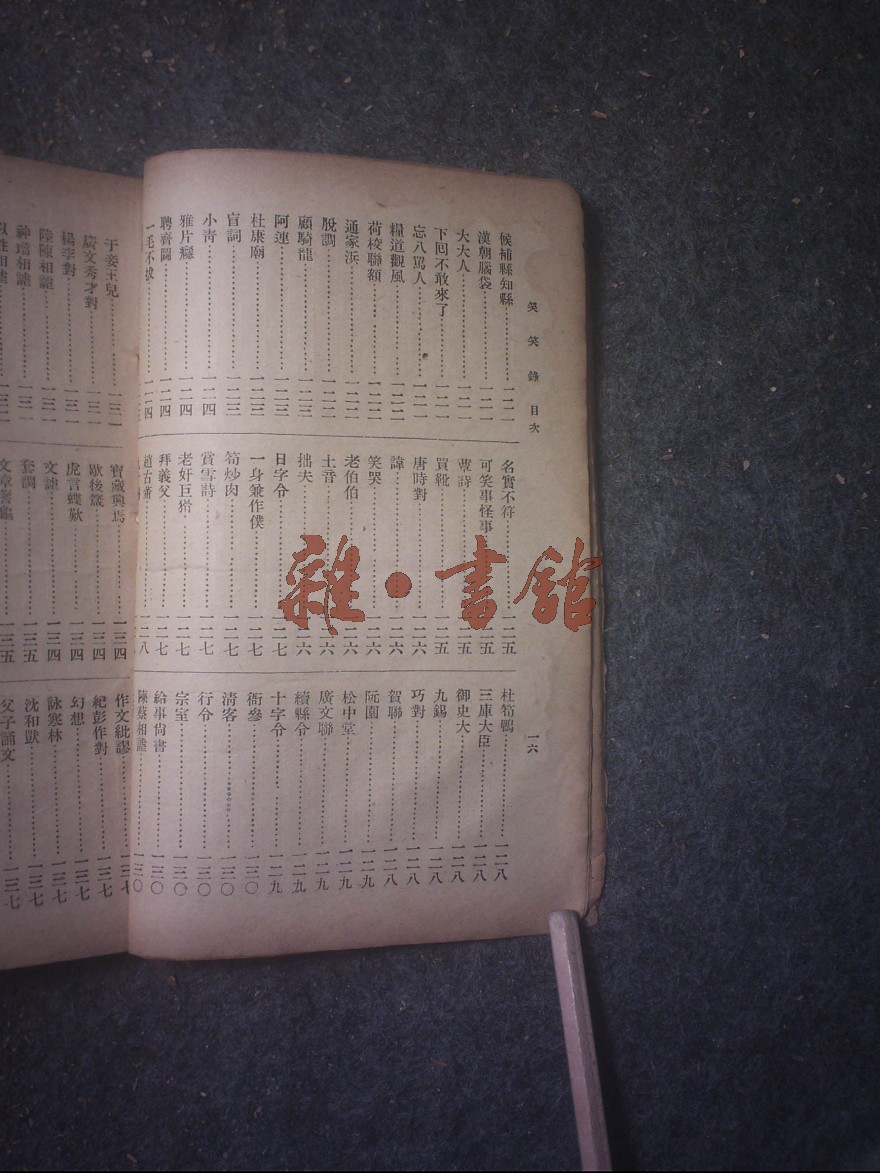 笑笑錄目次
一六
候補縣知縣……一二一
漢朝腦袋……一二一
大大人……一二一
下回不敢來了……一二一
忘八罵人……一二一
糧道觀風……一二二
荷校聯額……一二二
通家浜……一二二
脫調……一二二
顧騎龍……一二二
阿連……一二三
杜康廟……一二三
盲詞……一二三
小靑……一二四
雅片癮……一二四
聘齊鬪……一二四
一毛不拔……一二四
名實不符……一二五
可笑事怪事……一二五
蕈詩……一二五
買靴……一二五
唐時對……一二六
諱……一二六
笑哭……一二六
老伯伯……一二六
土音……一二六
拙夫……一二六
日字令……一二七
一身兼作僕……一二七
筍炒肉……一二七
賞雪詩……一二七
老奸巨猾……一二七
拜義父……一二七
趙古董……一二八
杜筍鴨……一二八
三庫大臣……一二八
御史大……一二八
九錫……一二八
巧對……一二八
賀聯……一二八
阮園……一二九
松中堂……一二九
廣文聯……一二九
續縣令……一二九
十字令……一二九
衙參……一三〇
清客……一三〇
行令……一三〇
宗室……一三〇
給事尙書……一三〇
陳蔡相謔……一三〇
于妾王兒……一三一
廣文秀才對……一三一
楊李對……一三一
陸陳相謔……一三一
寶嚴興焉……一三四
歇後箴……一三四
虎言蝶歎……一三四
文謔……一三四
套調……一三五
作文紕謬
紀彭作對……一三七
幻想……一三七
詠寒林……一三七
沈和獃……一三七
父子誦文……一三七
雜·書館